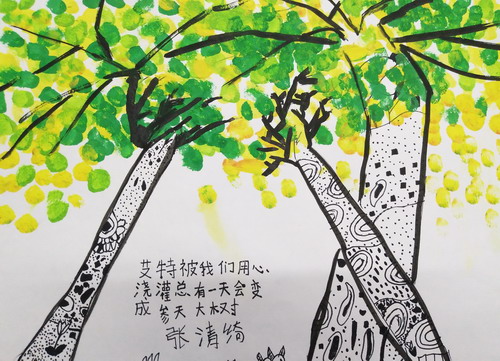 艾特被我们用心
浇灌总有一天会变
成参天大树
张清绮